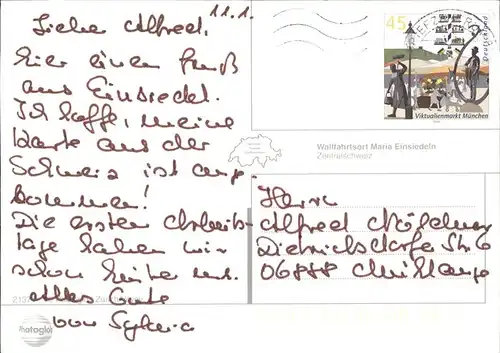 11.1.
Liebe Alfred,
hier einen Gruß
aus Einsiedel.
Ich hoffe, meine
Karte aus der
Schweiz ist ange-
kommen!
Die ersten Arbeits-
tage haben wir
schon hinter uns.
Alles Gute
von Sylvia
45
Deutschland
Viktualienmarkt München
Wallfahrtsort Maria Einsiedeln
Zentralschweiz
Herrn
Alfred
Dietrichsdorfer Str. 6
06888 Mühlanger
photoglob